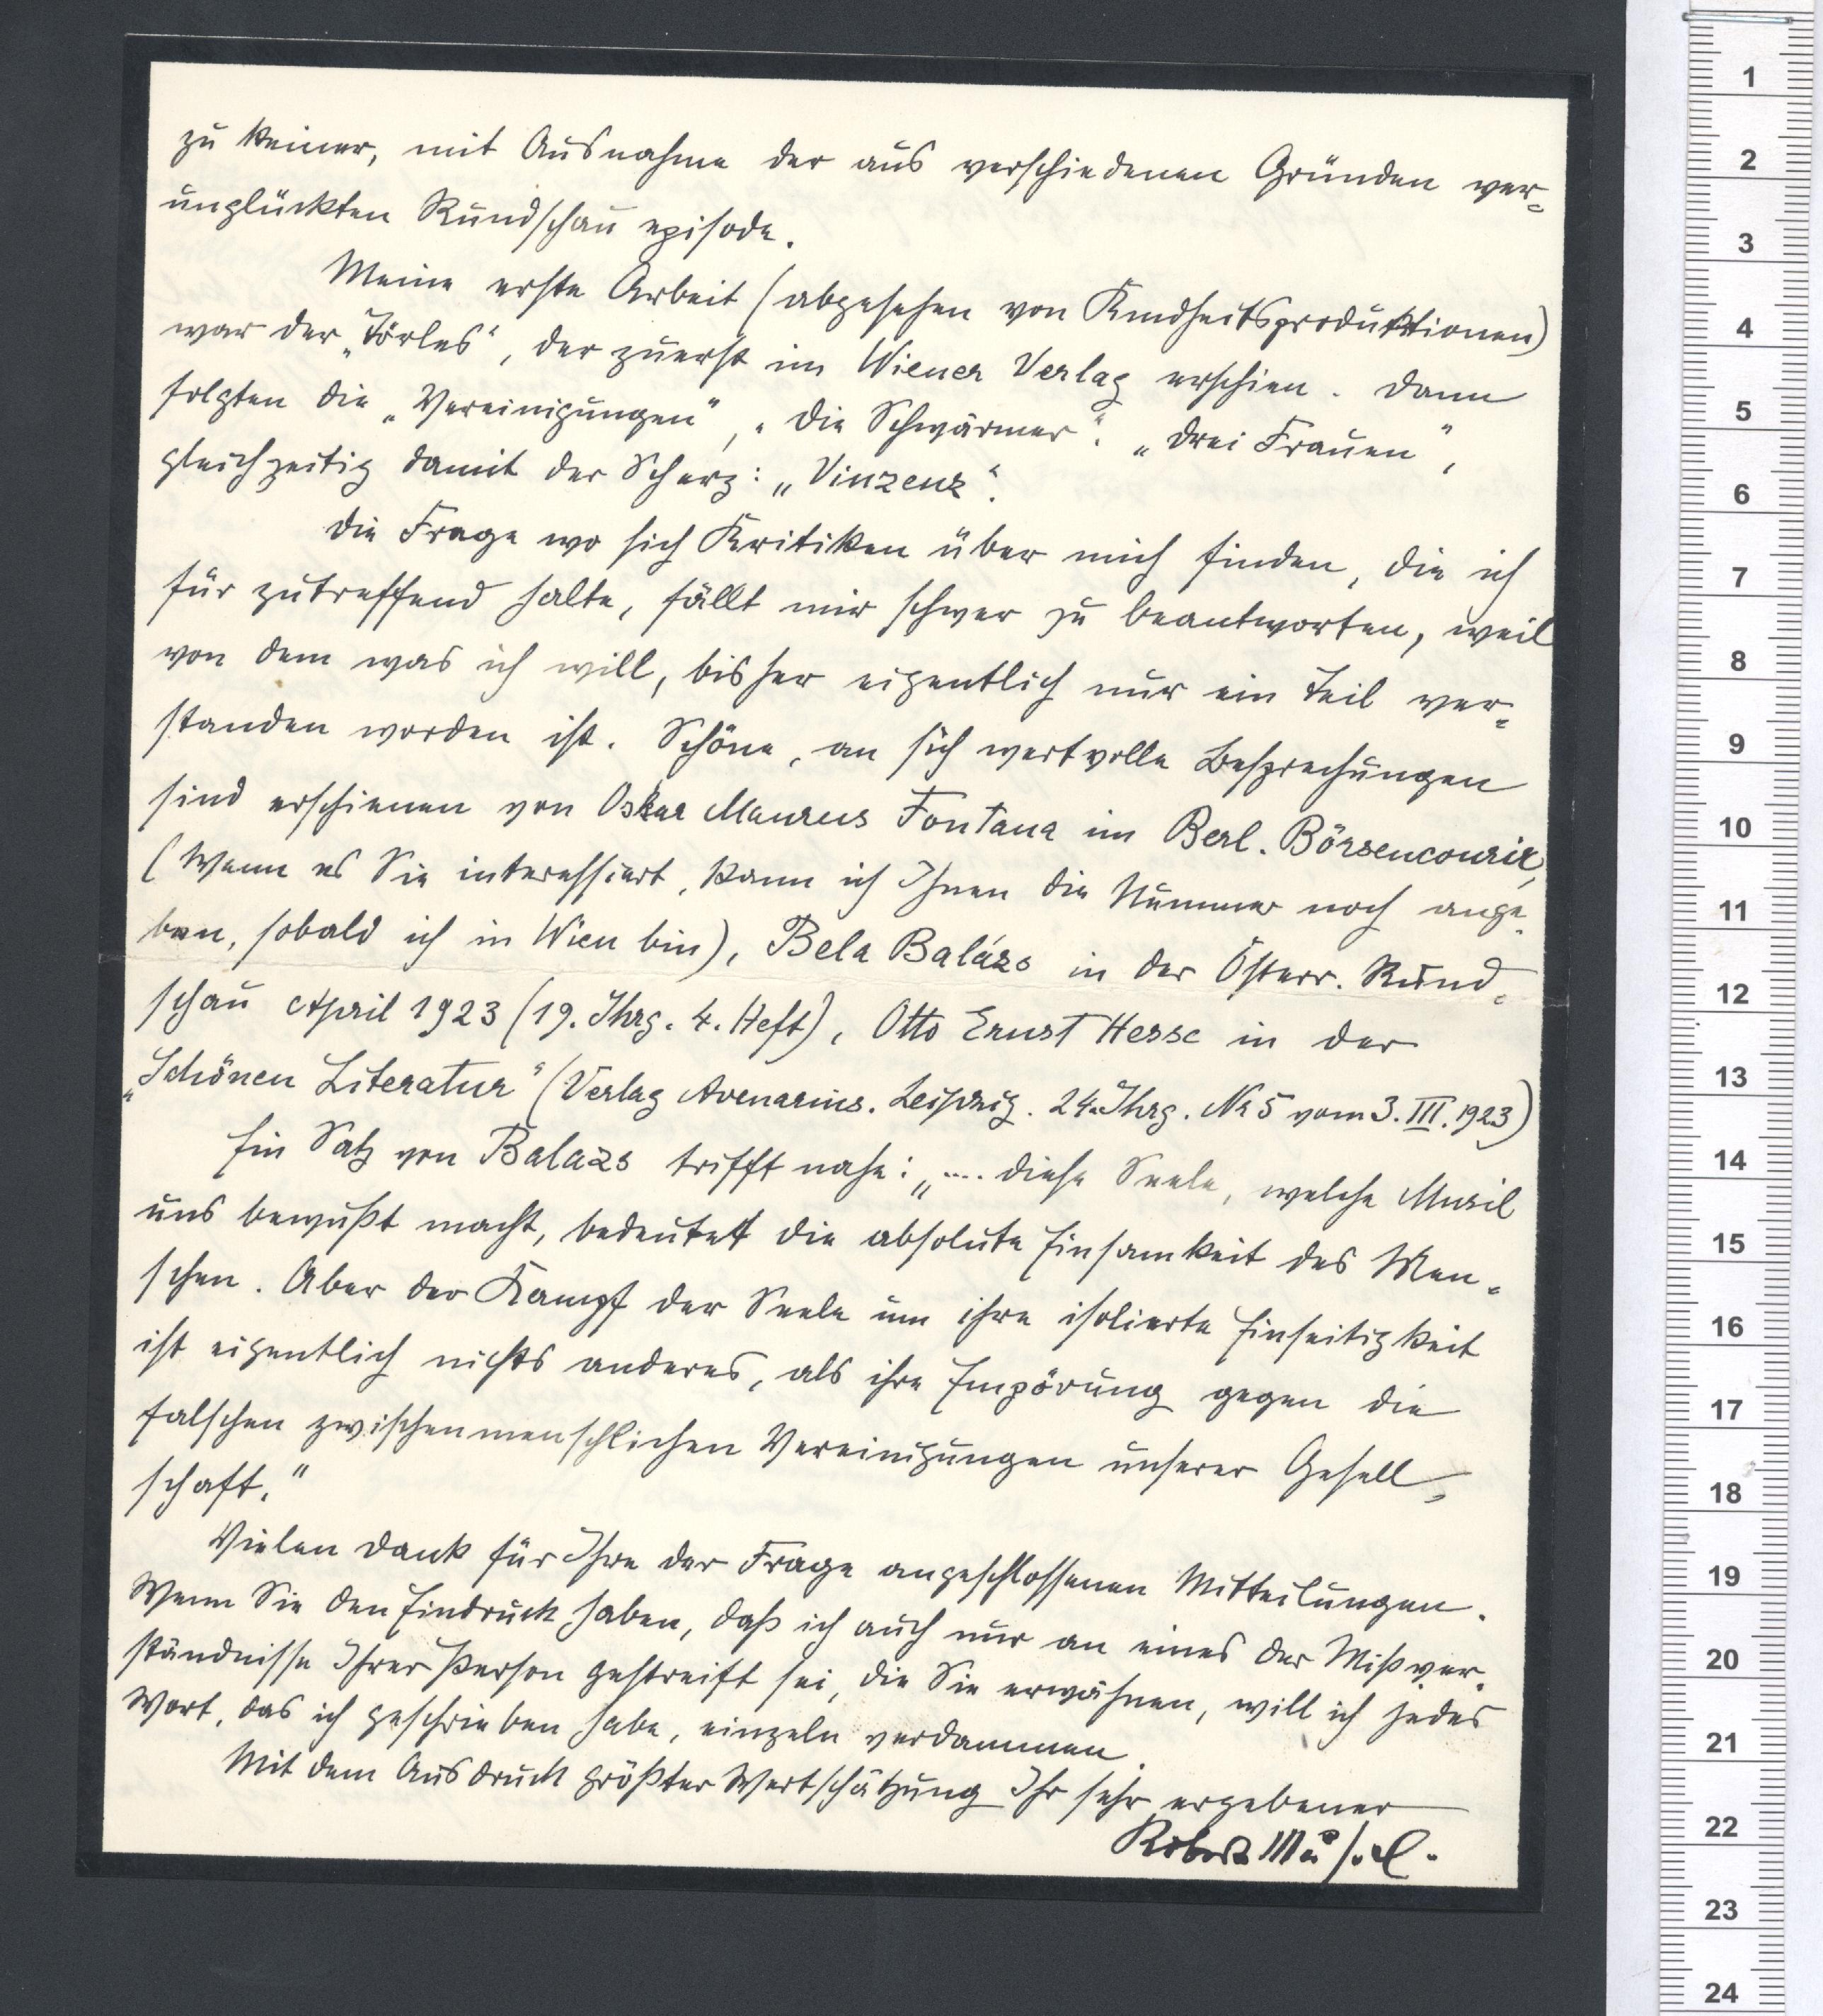 zu keiner, mit Ausnahme der aus verschiedenen Gründen ver-
unglückten Rundschau episode.
Meine erste Arbeit (abgesehen von Kindheitsproduktionen)
war der „Törles“, der zuerst im Wiener Verlag erschien. Dann
folgten die „Vereinigungen“, „Die Schwärmer“. „Drei Frauen“,
gleichzeitig damit der Scherz: „Vinzenz“.
Die Frage wo sich Kritiken über mich finden, die ich
für zutreffend halte, fällt mir schwer zu beantworten, weil
von dem was ich will, bisher eigentlich nur ein Teil ver-
standen worden ist. Schöne, an sich wertvolle Besprechungen
sind erschienen von Oskar Maurus Fontana im Berl. Börsencourir,
(Wenn es Sie interessiert, kann ich Ihnen die Nummer noch ange-
ben, sobald ich in Wien bin), Bela Balázs in der Österr. Rund-
schau April 1923 (19. Jhrg. 4. Heft), Otto Ernst Hesse in der
„Schönen Literatur“ (Verlag Avenarius. Leipzig. 24. Jhrg. Nr 5 vom 3. III. 1923)
Ein Satz von Balazs trifft nahe: „.... diese Seele, welche Musil
uns bewußt macht, bedeutet die absolute Einsamkeit des Men-
schen. Aber der Kampf der Seele um ihre isolierte Einseitigkeit
ist eigentlich nichts anderes, als ihre Empörung gegen die
falschen zwischenmenschlichen Vereinigungen unserer Gesell-
schaft.“
Vielen Dank für Ihre der Frage angeschlossenen Mitteilungen.
Wenn Sie den Eindruck haben, daß ich auch nur an eines der Mißver-
ständnisse Ihrer Person gestreift sei, die Sie erwähnen, will ich jedes
Wort, das ich geschrieben habe, einzeln verdammen.
Mit dem Ausdruck größter Wertschätzung Ihr sehr ergebener
Robert Musil.
1
2
3
4
5
6
7
8
9
10
11
12
13
14
15
16
17
18
19
20
21
22
23
24